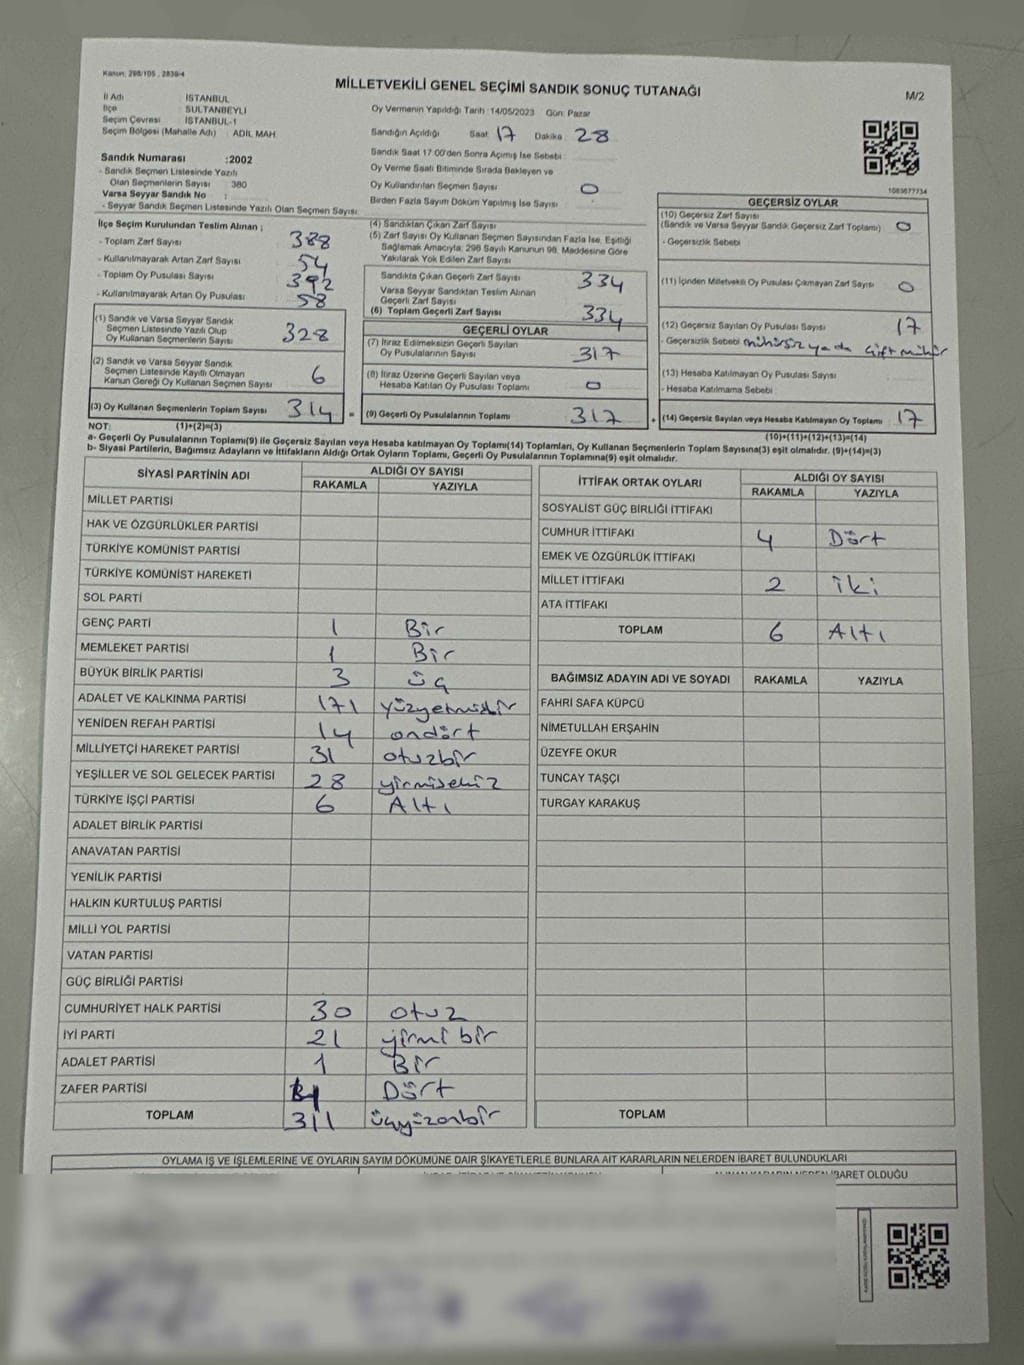 Kanun: 298/105 , 2839-4
MİLLETVEKİLİ GENEL SEÇİMİ SANDIK SONUÇ TUTANAĞI
M/2
İl Adı İSTANBUL
İlçe SULTANBEYLİ
Seçim Çevresi İSTANBUL-1
Seçim Bölgesi (Mahalle Adı) : ADİL MAH.
Oy Vermenin Yapıldığı Tarih :14/05/2023 Gün: Pazar
Sandığın Açıldığı Saat 17 Dakika 28
Sandık Saat 17:00'den Sonra Açımış İse Sebebi
Oy Verme Saati Bitiminde Sırada Bekleyen ve
Oy Kullandırılan Seçmen Sayısı 0
Birden Fazla Sayım Döküm Yapılmış İse Sayısı :
Sandık Numarası :2002
- Sandık Seçmen Listesinde Yazılı
Olan Seçmenlerin Sayısı : 380
Varsa Seyyar Sandık No :
- Seyyar Sandık Seçmen Listesinde Yazılı Olan Seçmen Sayısı:
1083677734
İlçe Seçim Kurulundan Teslim Alınan ;
- Toplam Zarf Sayısı 388
- Kullanılmayarak Artan Zarf Sayısı 54
- Toplam Oy Pusulası Sayısı 392
- Kullanılmayarak Artan Oy Pusulası 58
(1) Sandık ve Varsa Seyyar Sandık
Seçmen Listesinde Yazılı Olup
Oy Kullanan Seçmenlerin Sayısı 328
(2) Sandık ve Varsa Seyyar Sandık
Seçmen Listesinde Kayıtlı Olmayan
Kanun Gereği Oy Kullanan Seçmen Sayısı 6
(3) Oy Kullanan Seçmenlerin Toplam Sayısı 314 =
(4) Sandıktan Çıkan Zarf Sayısı
(5) Zarf Sayısı Oy Kullanan Seçmen Sayısından Fazla İse, Eşitliği
Sağlamak Amacıyla, 298 Sayılı Kanunun 98. Maddesine Göre
Yakılarak Yok Edilen Zarf Sayısı
Sandıkta Çıkan Geçerli Zarf Sayısı 334
Varsa Seyyar Sandıktan Teslim Alınan
Geçerli Zarf Sayısı
(6) Toplam Geçerli Zarf Sayısı 334
GEÇERLİ OYLAR
(7) İtiraz Edilmeksizin Geçerli Sayılan
Oy Pusulalarının Sayısı 317
(8) İtiraz Üzerine Geçerli Sayılan veya
Hesaba Katılan Oy Pusulası Toplamı 0
(9) Geçerli Oy Pusulalarının Toplamı 317 +
GEÇERSİZ OYLAR
(10) Geçersiz Zarf Sayısı
(Sandık ve Varsa Seyyar Sandık Geçersiz Zarf Toplamı) 0
- Geçersizlik Sebebi
(11) İçinden Milletvekili Oy Pusulası Çıkmayan Zarf Sayısı 0
(12) Geçersiz Sayılan Oy Pusulası Sayısı 17
- Geçersizlik Sebebi mühürsüz ya da çift mühür
(13) Hesaba Katılmayan Oy Pusulası Sayısı
- Hesaba Katılmama Sebebi
(14) Geçersiz Sayılan veya Hesaba Katılmayan Oy Toplamı 17
NOT: (1)+(2)=(3) (10)+(11)+(12)+(13)=(14)
a- Geçerli Oy Pusulalarının Toplamı(9) ile Geçersiz Sayılan veya Hesaba katılmayan Oy Toplamı(14) Toplamları, Oy Kullanan Seçmenlerin Toplam Sayısına(3) eşit olmalıdır. (9)+(14)=(3)
b- Siyasi Partilerin, Bağımsız Adayların ve İttifakların Aldığı Ortak Oyların Toplamı, Geçerli Oy Pusulalarının Toplamına(9) eşit olmalıdır.
SİYASİ PARTİNİN ADI ALDIĞI OY SAYISI
RAKAMLA YAZIYLA
MİLLET PARTİSİ
HAK VE ÖZGÜRLÜKLER PARTİSİ
TÜRKİYE KOMÜNİST PARTİSİ
TÜRKİYE KOMÜNİST HAREKETİ
SOL PARTİ
GENÇ PARTİ 1 Bir
MEMLEKET PARTİSİ 1 Bir
BÜYÜK BİRLİK PARTİSİ 3 üç
ADALET VE KALKINMA PARTİSİ 171 yüzyetmişbir
YENİDEN REFAH PARTİSİ 14 ondört
MİLLİYETÇİ HAREKET PARTİSİ 31 otuzbir
YEŞİLLER VE SOL GELECEK PARTİSİ 28 yirmisekiz
TÜRKİYE İŞÇİ PARTİSİ 6 Altı
ADALET BİRLİK PARTİSİ
ANAVATAN PARTİSİ
YENİLİK PARTİSİ
HALKIN KURTULUŞ PARTİSİ
MİLLİ YOL PARTİSİ
VATAN PARTİSİ
GÜÇ BİRLİĞİ PARTİSİ
CUMHURİYET HALK PARTİSİ 30 otuz
İYİ PARTİ 21 yirmi bir
ADALET PARTİSİ 1 Bir
ZAFER PARTİSİ 4 Dört
TOPLAM 311 üçyüzonbir
İTTİFAK ORTAK OYLARI ALDIĞI OY SAYISI
RAKAMLA YAZIYLA
SOSYALİST GÜÇ BİRLİĞİ İTTİFAKI
CUMHUR İTTİFAKI 4 Dört
EMEK VE ÖZGÜRLÜK İTTİFAKI
MİLLET İTTİFAKI 2 iki
ATA İTTİFAKI
TOPLAM 6 Altı
BAĞIMSIZ ADAYIN ADI VE SOYADI RAKAMLA YAZIYLA
FAHRİ SAFA KÜPCÜ
NİMETULLAH ERŞAHİN
ÜZEYFE OKUR
TUNCAY TAŞÇI
TURGAY KARAKUŞ
TOPLAM
OYLAMA İŞ VE İŞLEMLERİNE VE OYLARIN SAYIM DÖKÜMÜNE DAİR ŞİKAYETLERLE BUNLARA AİT KARARLARIN NELERDEN İBARET BULUNDUKLARI
İBARET OLDUĞU